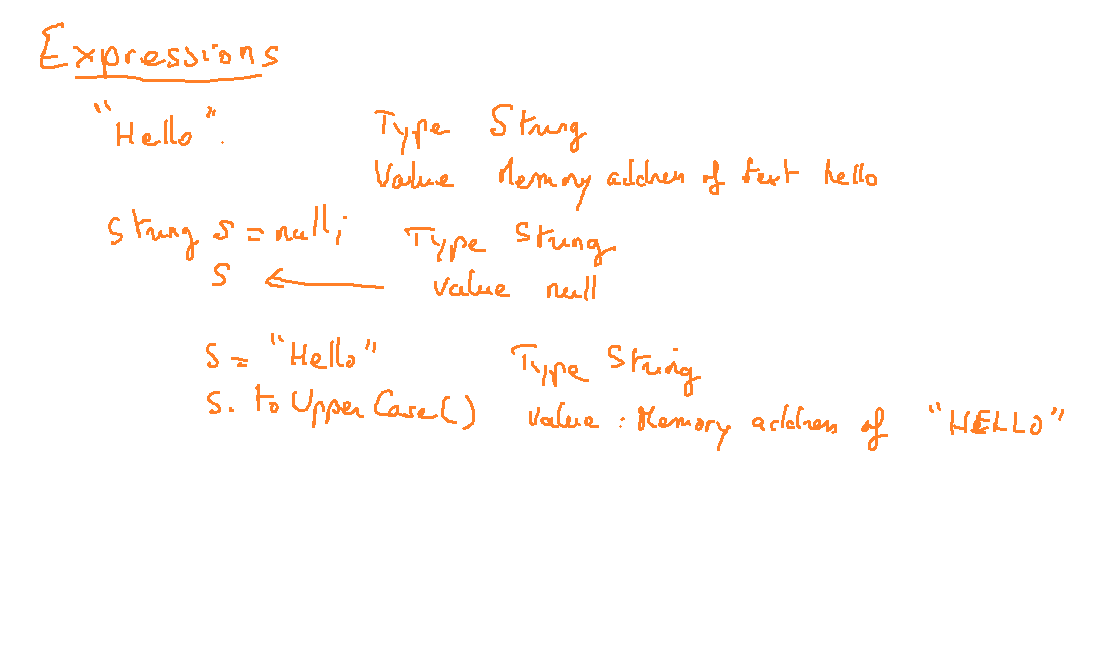 Expressions
"Hello". Type String
Value Memory address of text hello
String s = null; Type String
s ← value null
s = "Hello" Type String
s. toUpperCase() value : Memory address of "HELLO"